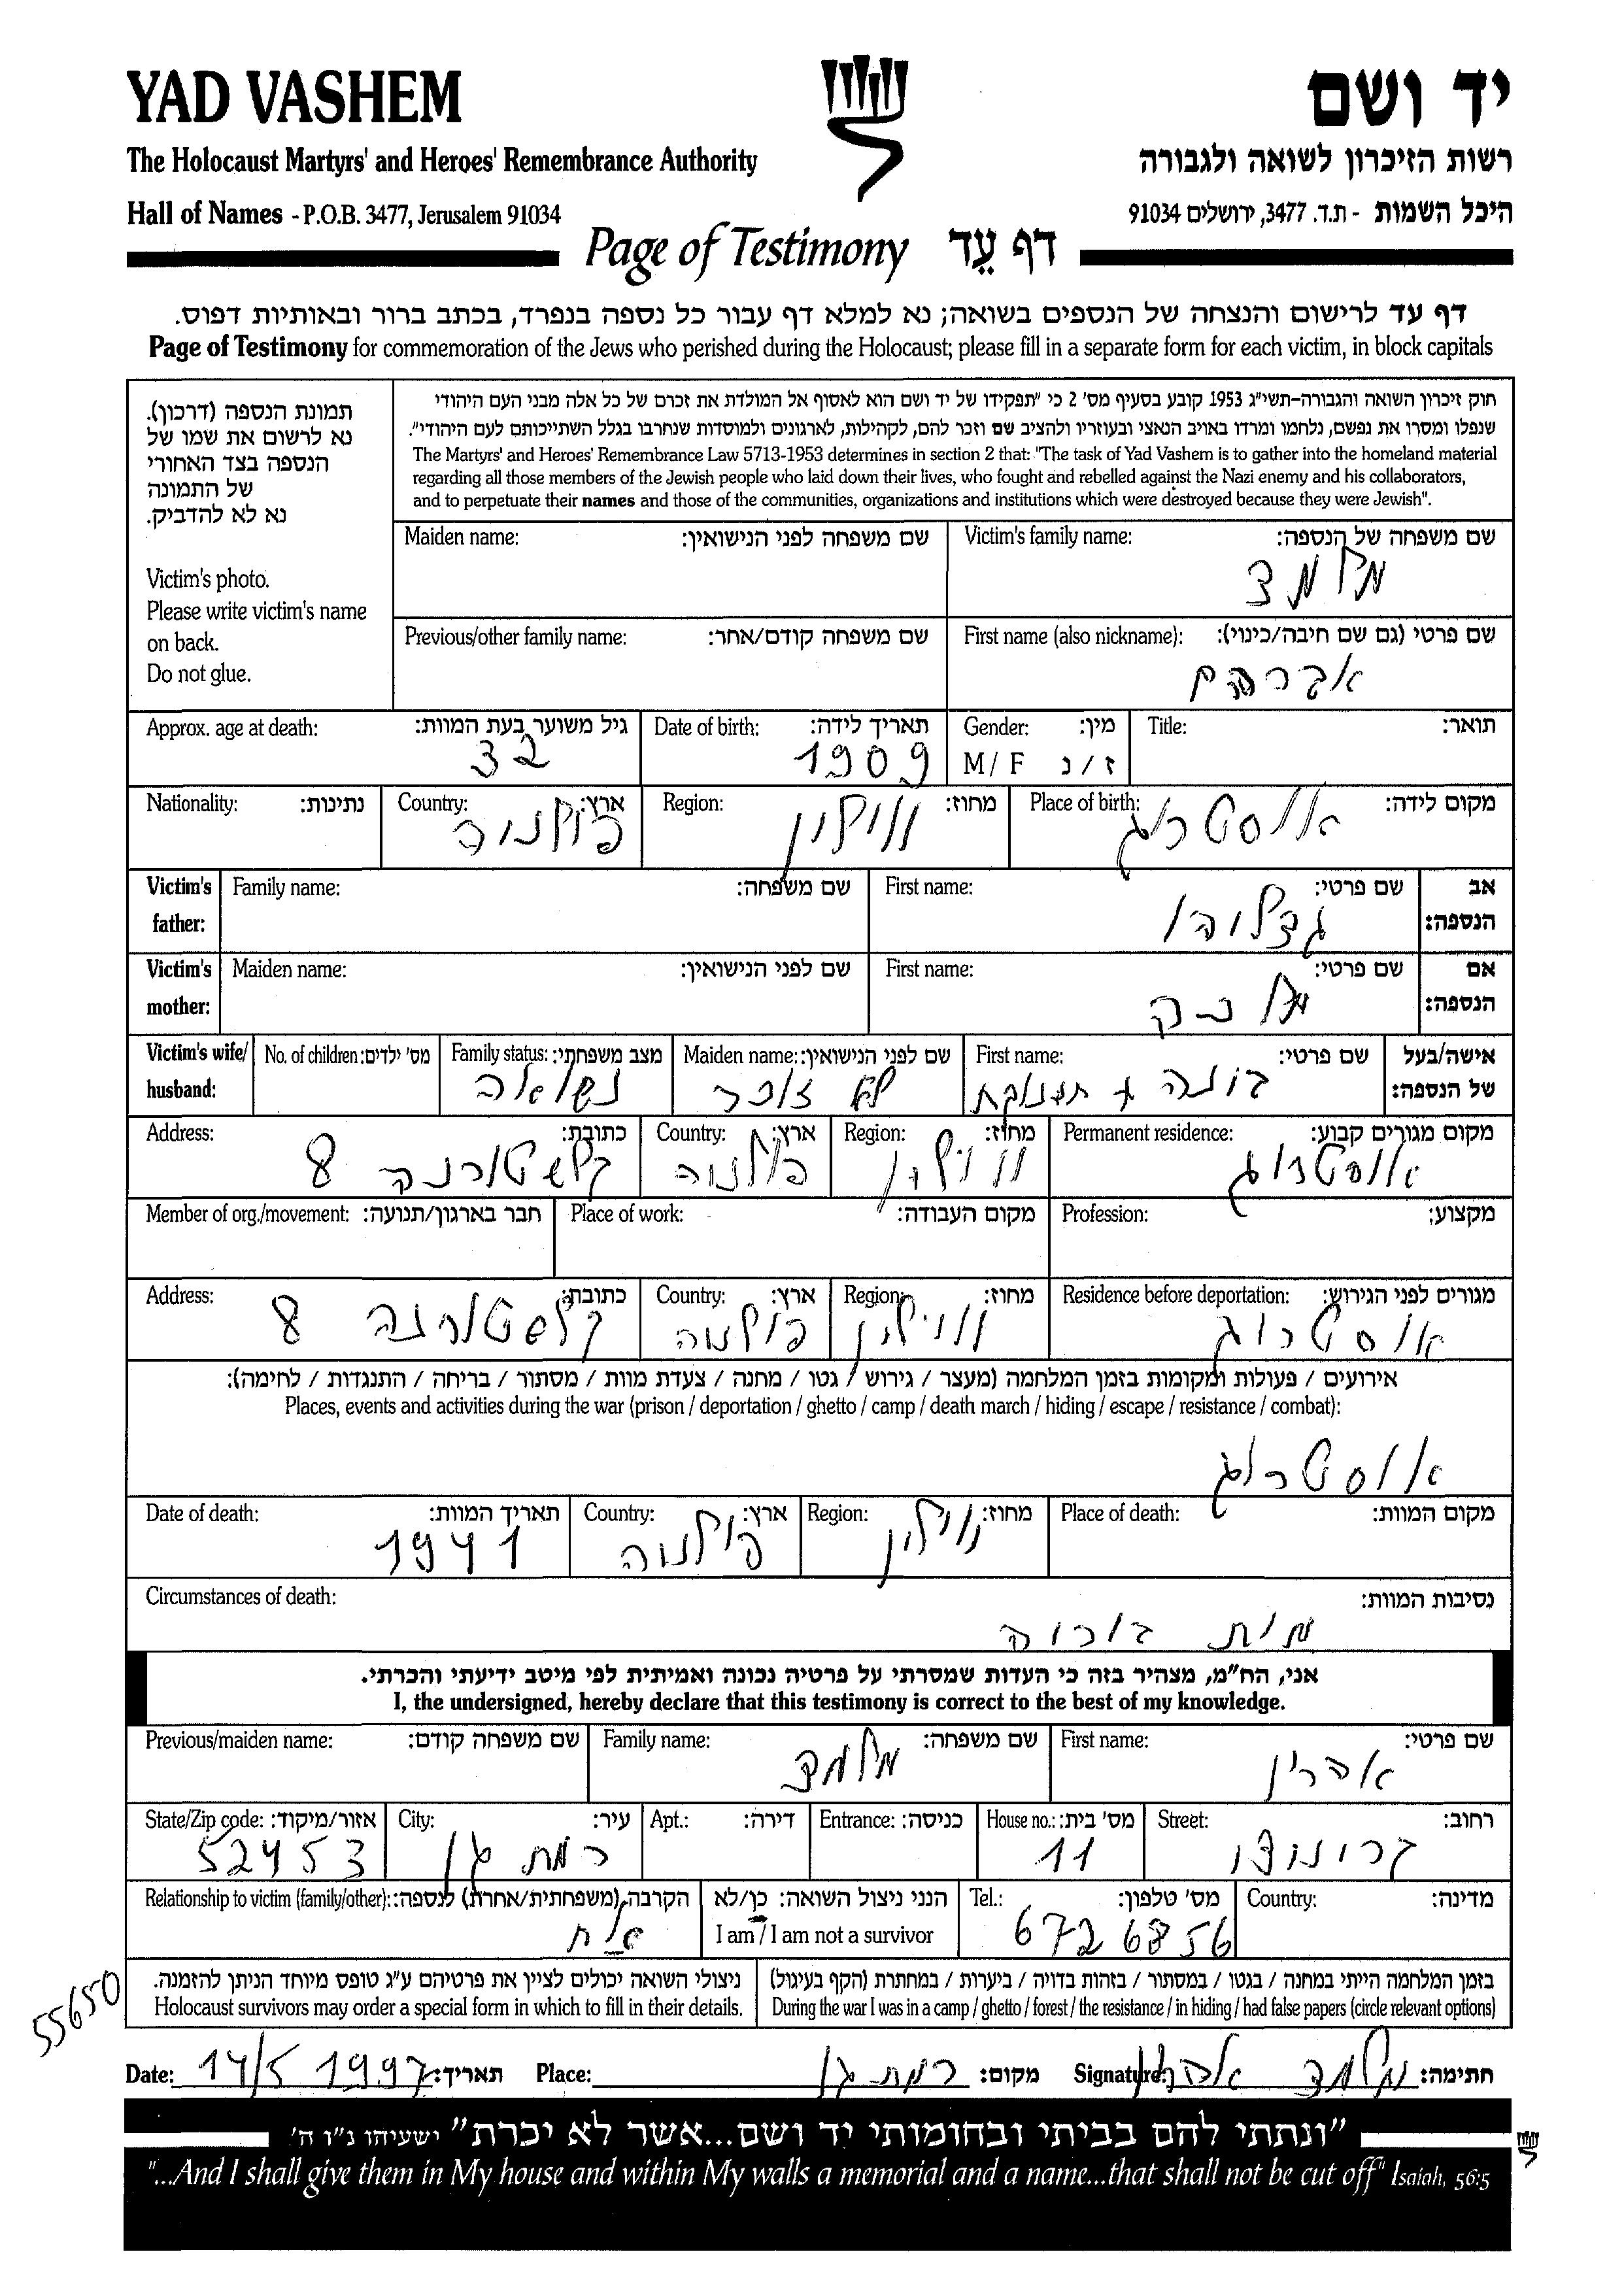 YAD VASHEM יד ושם
The Holocaust Martyrs' and Heroes' Remembrance Authority רשות הזיכרון לשואה ולגבורה
Hall of Names - P.O.B. 3477, Jerusalem 91034 היכל השמות - ת.ד. 3477, ירושלים 91034
Page of Testimony דף עֵד
דף עד לרישום והנצחה של הנספים בשואה; נא למלא דף עבור כל נספה בנפרד, בכתב ברור ובאותיות דפוס.
Page of Testimony for commemoration of the Jews who perished during the Holocaust; please fill in a separate form for each victim, in block capitals
תמונת הנספה (דרכון).
נא לרשום את שמו של
הנספה בצד האחורי
של התמונה
נא לא להדביק.
Victim's photo.
Please write victim's name
on back.
Do not glue.
חוק זיכרון השואה והגבורה-תשי״ג 1953 קובע בסעיף מס׳ 2 כי ״תפקידו של יד ושם הוא לאסוף אל המולדת את זכרם של כל אלה מבני העם היהודי
שנפלו ומסרו את נפשם, נלחמו ומרדו באויב הנאצי ובעוזריו ולהציב שם וזכר להם, לקהילות, לארגונים ולמוסדות שנחרבו בגלל השתייכותם לעם היהודי״.
The Martyrs' and Heroes' Remembrance Law 5713-1953 determines in section 2 that: "The task of Yad Vashem is to gather into the homeland material
regarding all those members of the Jewish people who laid down their lives, who fought and rebelled against the Nazi enemy and his collaborators,
and to perpetuate their names and those of the communities, organizations and institutions which were destroyed because they were Jewish".
Maiden name: שם משפחה לפני הנישואין: Victim's family name: שם משפחה של הנספה:
מלמד
Previous/other family name: שם משפחה קודם/אחר: First name (also nickname): שם פרטי (גם שם חיבה/כינוי):
אברהם
Approx. age at death: גיל משוער בעת המוות: Date of birth: תאריך לידה: Gender: מין: Title: תואר:
32 1909 M/ F ז / נ
Nationality: נתינות: Country: ארץ: Region: מחוז: Place of birth: מקום לידה:
פולניה ווילין אוסטרוג
Victim's father: Family name: שם משפחה: First name: שם פרטי: אב הנספה:
גדליהו
Victim's mother: Maiden name: שם לפני הנישואין: First name: שם פרטי: אם הנספה:
Victim's wife/ husband: No. of children: מס׳ ילדים: Family status: מצב משפחתי: Maiden name: שם לפני הנישואין: First name: שם פרטי: אישה/בעל של הנספה:
נשואה לא זוכר בונה + תינוקת
Address: כתובת: Country: ארץ: Region: מחוז: Permanent residence: מקום מגורים קבוע:
8 פולניה ווילין אוסטרוג
Member of org./movement: חבר בארגון/תנועה: Place of work: מקום העבודה: Profession: מקצוע:
Address: כתובת: Country: ארץ: Region: מחוז: Residence before deportation: מגורים לפני הגירוש:
8 פולניה ווילין אוסטרוג
אירועים / פעולות ומקומות בזמן המלחמה (מעצר / גירוש / גטו / מחנה / צעדת מוות / מסתור / בריחה / התנגדות / לחימה):
Places, events and activities during the war (prison / deportation / ghetto / camp / death march / hiding / escape / resistance / combat):
אוסטרוג
Date of death: תאריך המוות: Country: ארץ: Region: מחוז: Place of death: מקום המוות:
1941 פולניה ווילין
Circumstances of death: נסיבות המוות:
מות
אני, הח״מ, מצהיר בזה כי העדות שמסרתי על פרטיה נכונה ואמיתית לפי מיטב ידיעתי והכרתי.
I, the undersigned, hereby declare that this testimony is correct to the best of my knowledge.
Previous/maiden name: שם משפחה קודם: Family name: שם משפחה: First name: שם פרטי:
מלמד אהרון
State/Zip code: אזור/מיקוד: City: עיר: Apt.: דירה: Entrance: כניסה: House no.: מס׳ בית: Street: רחוב:
52453 רמת גן 11
Relationship to victim (family/other): הקרבה (משפחתית/אחרת) לנספה: הנני ניצול השואה: כן/לא Tel.: מס׳ טלפון: Country: מדינה:
אח I am / I am not a survivor 6726856
בזמן המלחמה הייתי במחנה / בגטו / במסתור / בזהות בדויה / ביערות / במחתרת (הקף בעיגול) ניצולי השואה יכולים לציין את פרטיהם ע״ג טופס מיוחד הניתן להזמנה.
Holocaust survivors may order a special form in which to fill in their details. During the war I was in a camp / ghetto / forest / the resistance / in hiding / had false papers (circle relevant options)
55650
Date: 14/5 1997 תאריך: Place: רמת גן מקום: Signature: מלמד אהרון חתימה:
״ונתתי להם בביתי ובחומותי יד ושם...אשר לא יכרת״ ישעיהו נ״ו ה׳
"...And I shall give them in My house and within My walls a memorial and a name...that shall not be cut off" Isaiah, 56:5